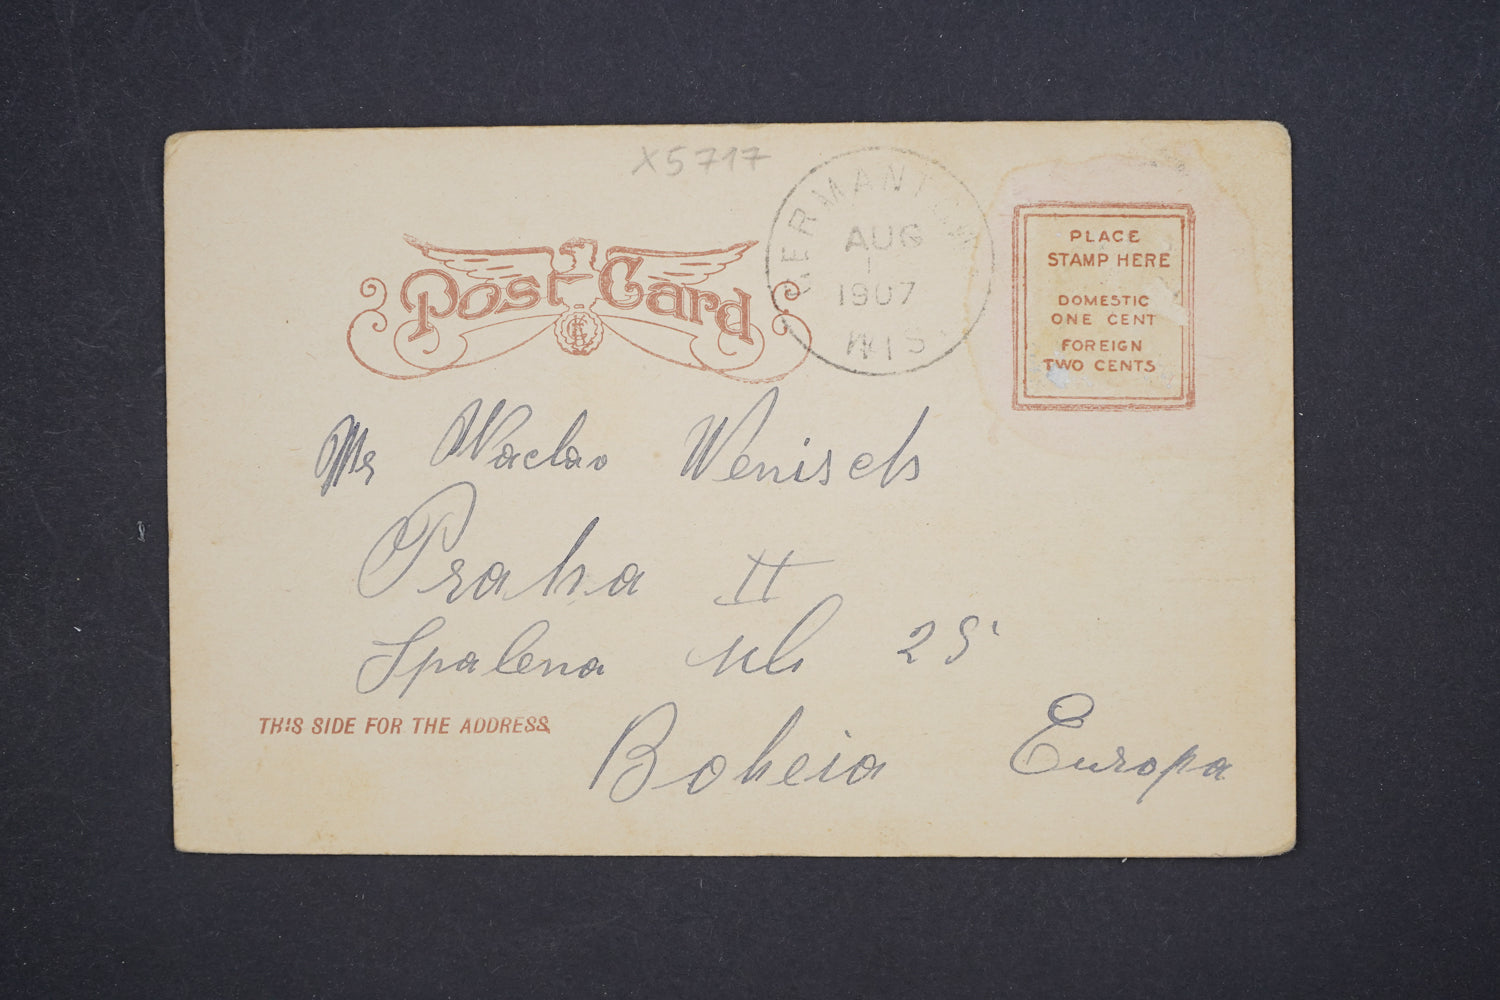 X5717
Post Card
GERMANTOWN
AUG
1
1907
WIS
PLACE
STAMP HERE
DOMESTIC
ONE CENT
FOREIGN
TWO CENTS
Mr Waclav Wenisch
Praha II
Spalena ul 25
THIS SIDE FOR THE ADDRESS
Boheia Europa